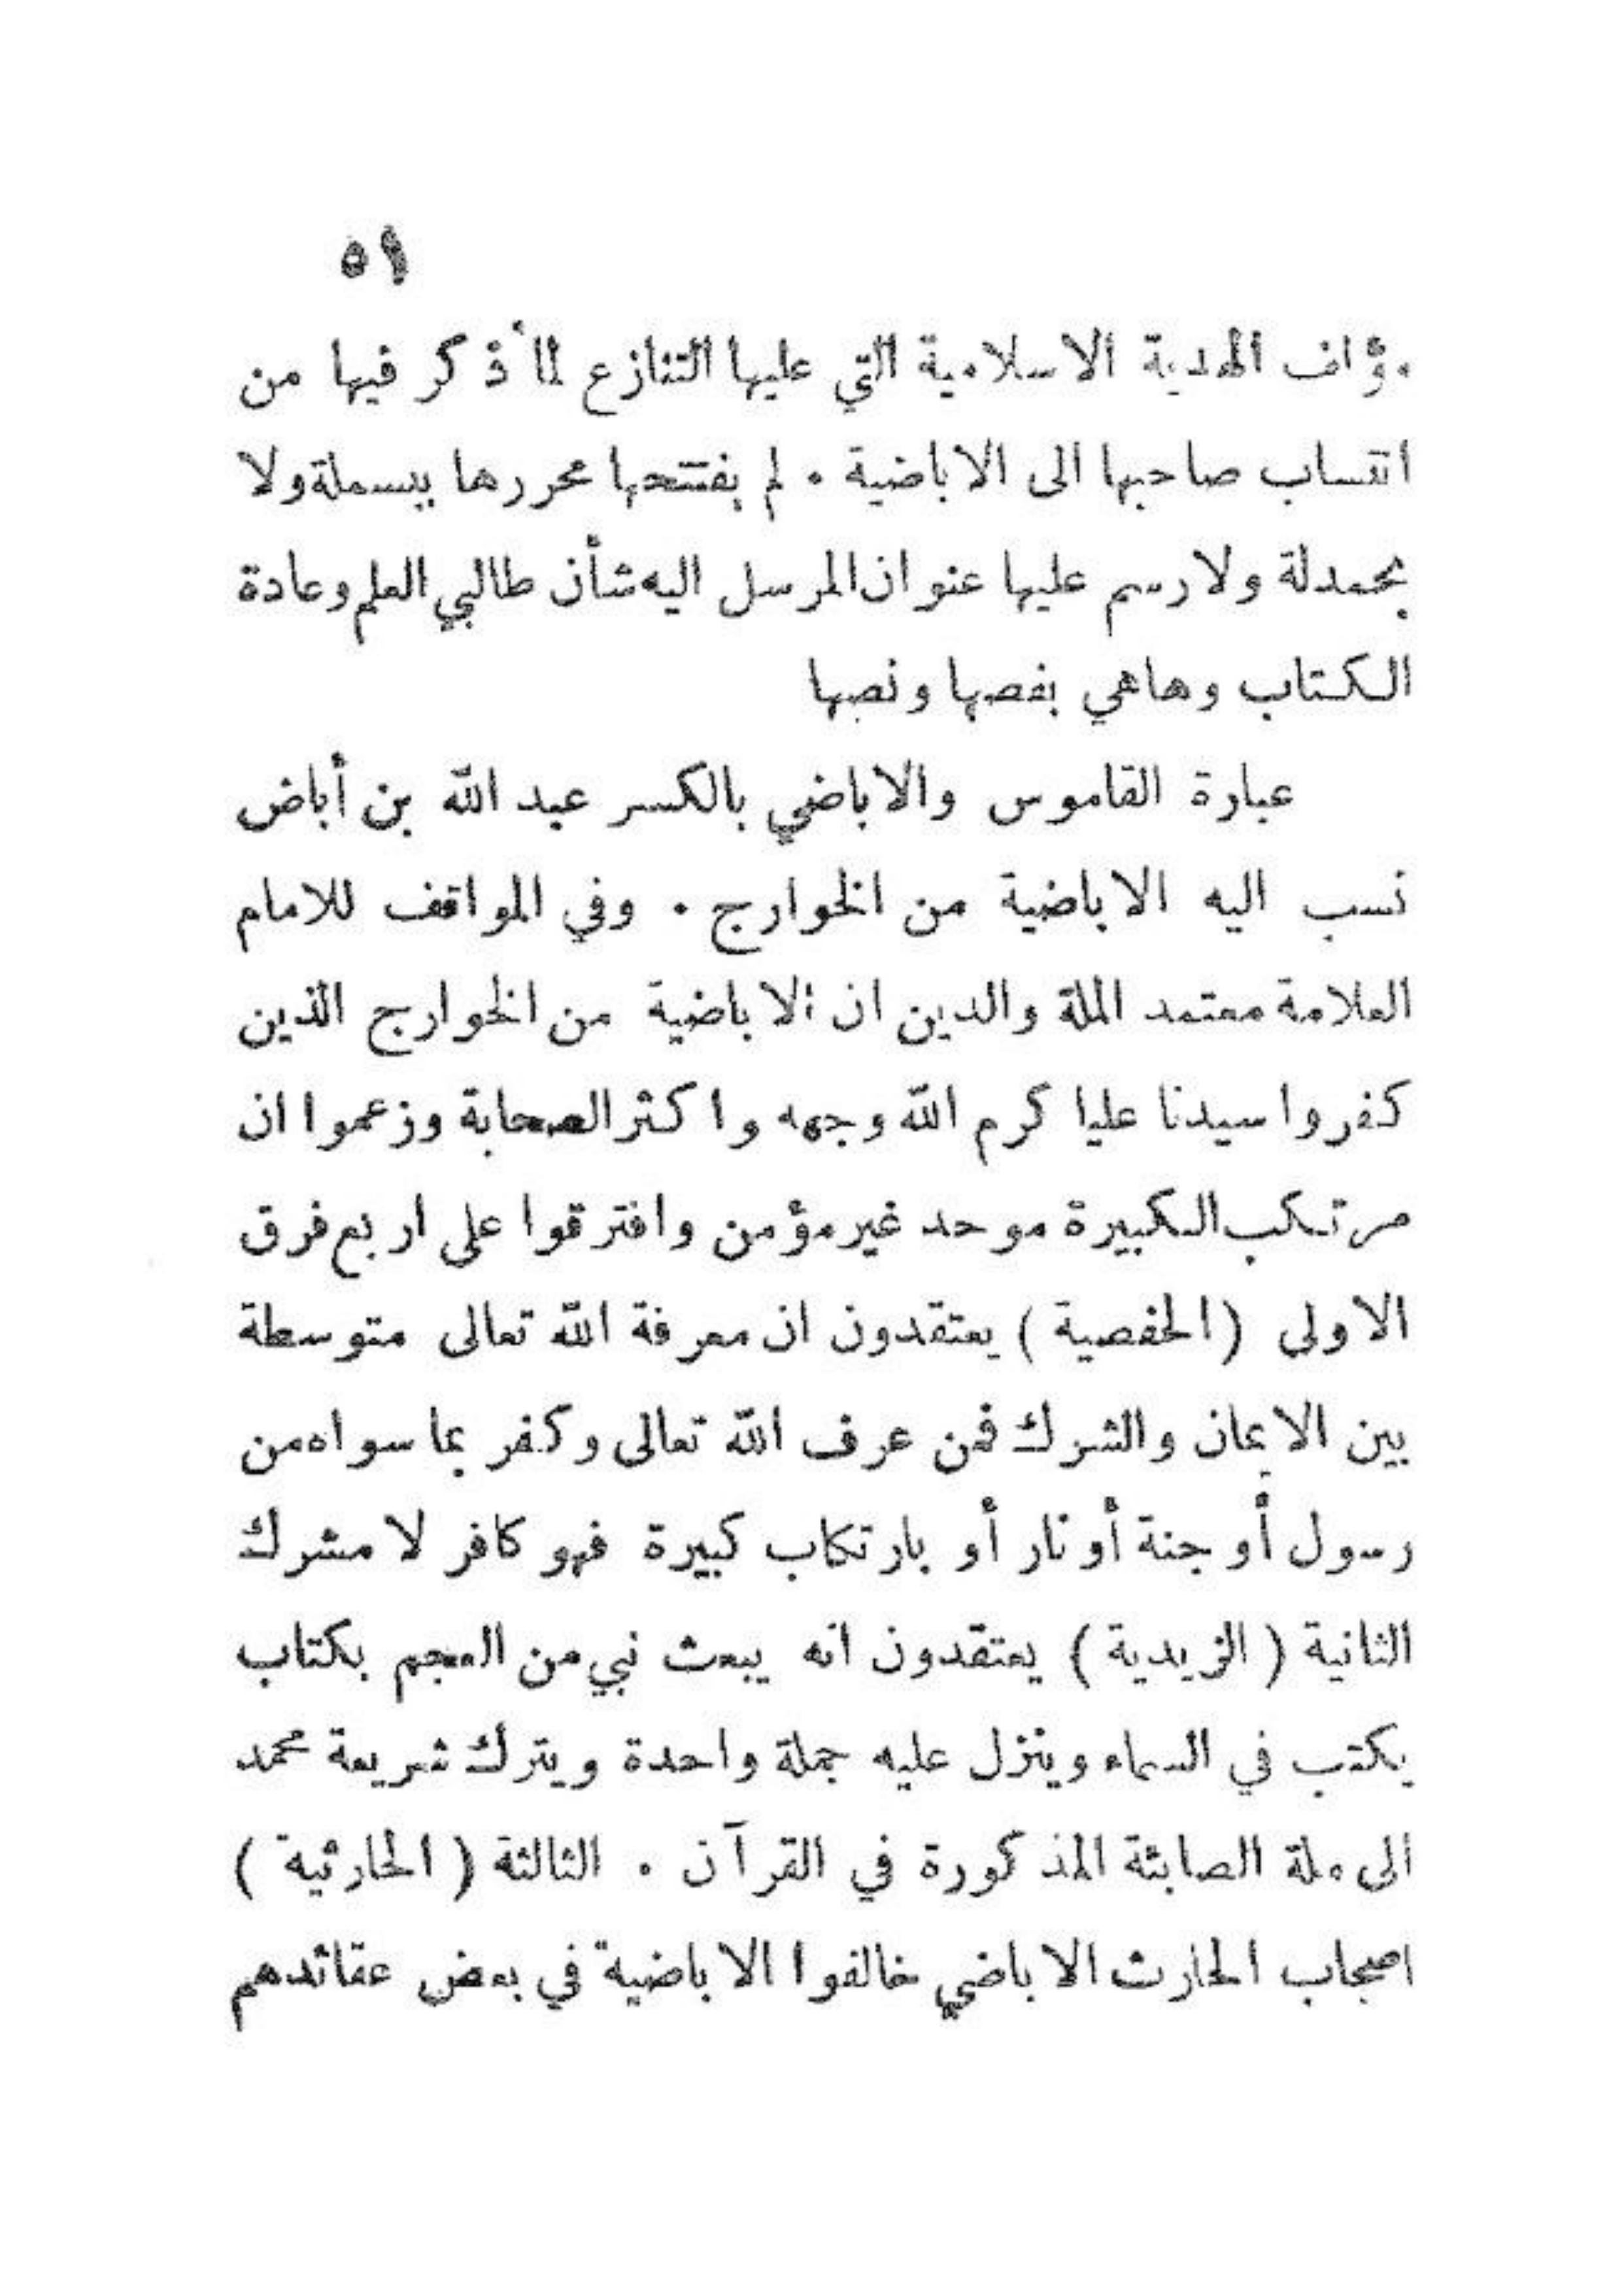 ٥١
مؤلف الهدية الاسلامية التي عليها التنازع لما ذُكر فيها من
انتساب صاحبها الى الاباضية . لم يفتتحها محررها ببسملة ولا
بحمدلة ولا رسم عليها عنوان المرسل اليه شأن طالبي العلم وعادة
الكتاب وهاهي بفصها ونصها
عبارة القاموس والاباضي بالكسر عبد الله بن أباض
نسب اليه الاباضية من الخوارج . وفي المواقف للامام
العلامة معتمد الملة والدين ان الاباضية من الخوارج الذين
كفروا سيدنا عليا كرم الله وجهه واكثر الصحابة وزعموا ان
مرتكب الكبيرة موحد غير مؤمن وافترقوا على اربع فرق
الاولى (الحفصية) يعتقدون ان معرفة الله تعالى متوسطة
بين الايمان والشرك فمن عرف الله تعالى وكفر بما سواه من
رسول أو جنة أو نار أو بارتكاب كبيرة فهو كافر لا مشرك
الثانية (الزيدية) يعتقدون انه يبعث نبي من العجم بكتاب
يكتب في السماء وينزل عليه جملة واحدة ويترك شريعة محمد
الى ملة الصابئة المذكورة في القرآن . الثالثة (الحارثية)
اصحاب الحارث الاباضي خالفوا الاباضية في بعض عقائدهم